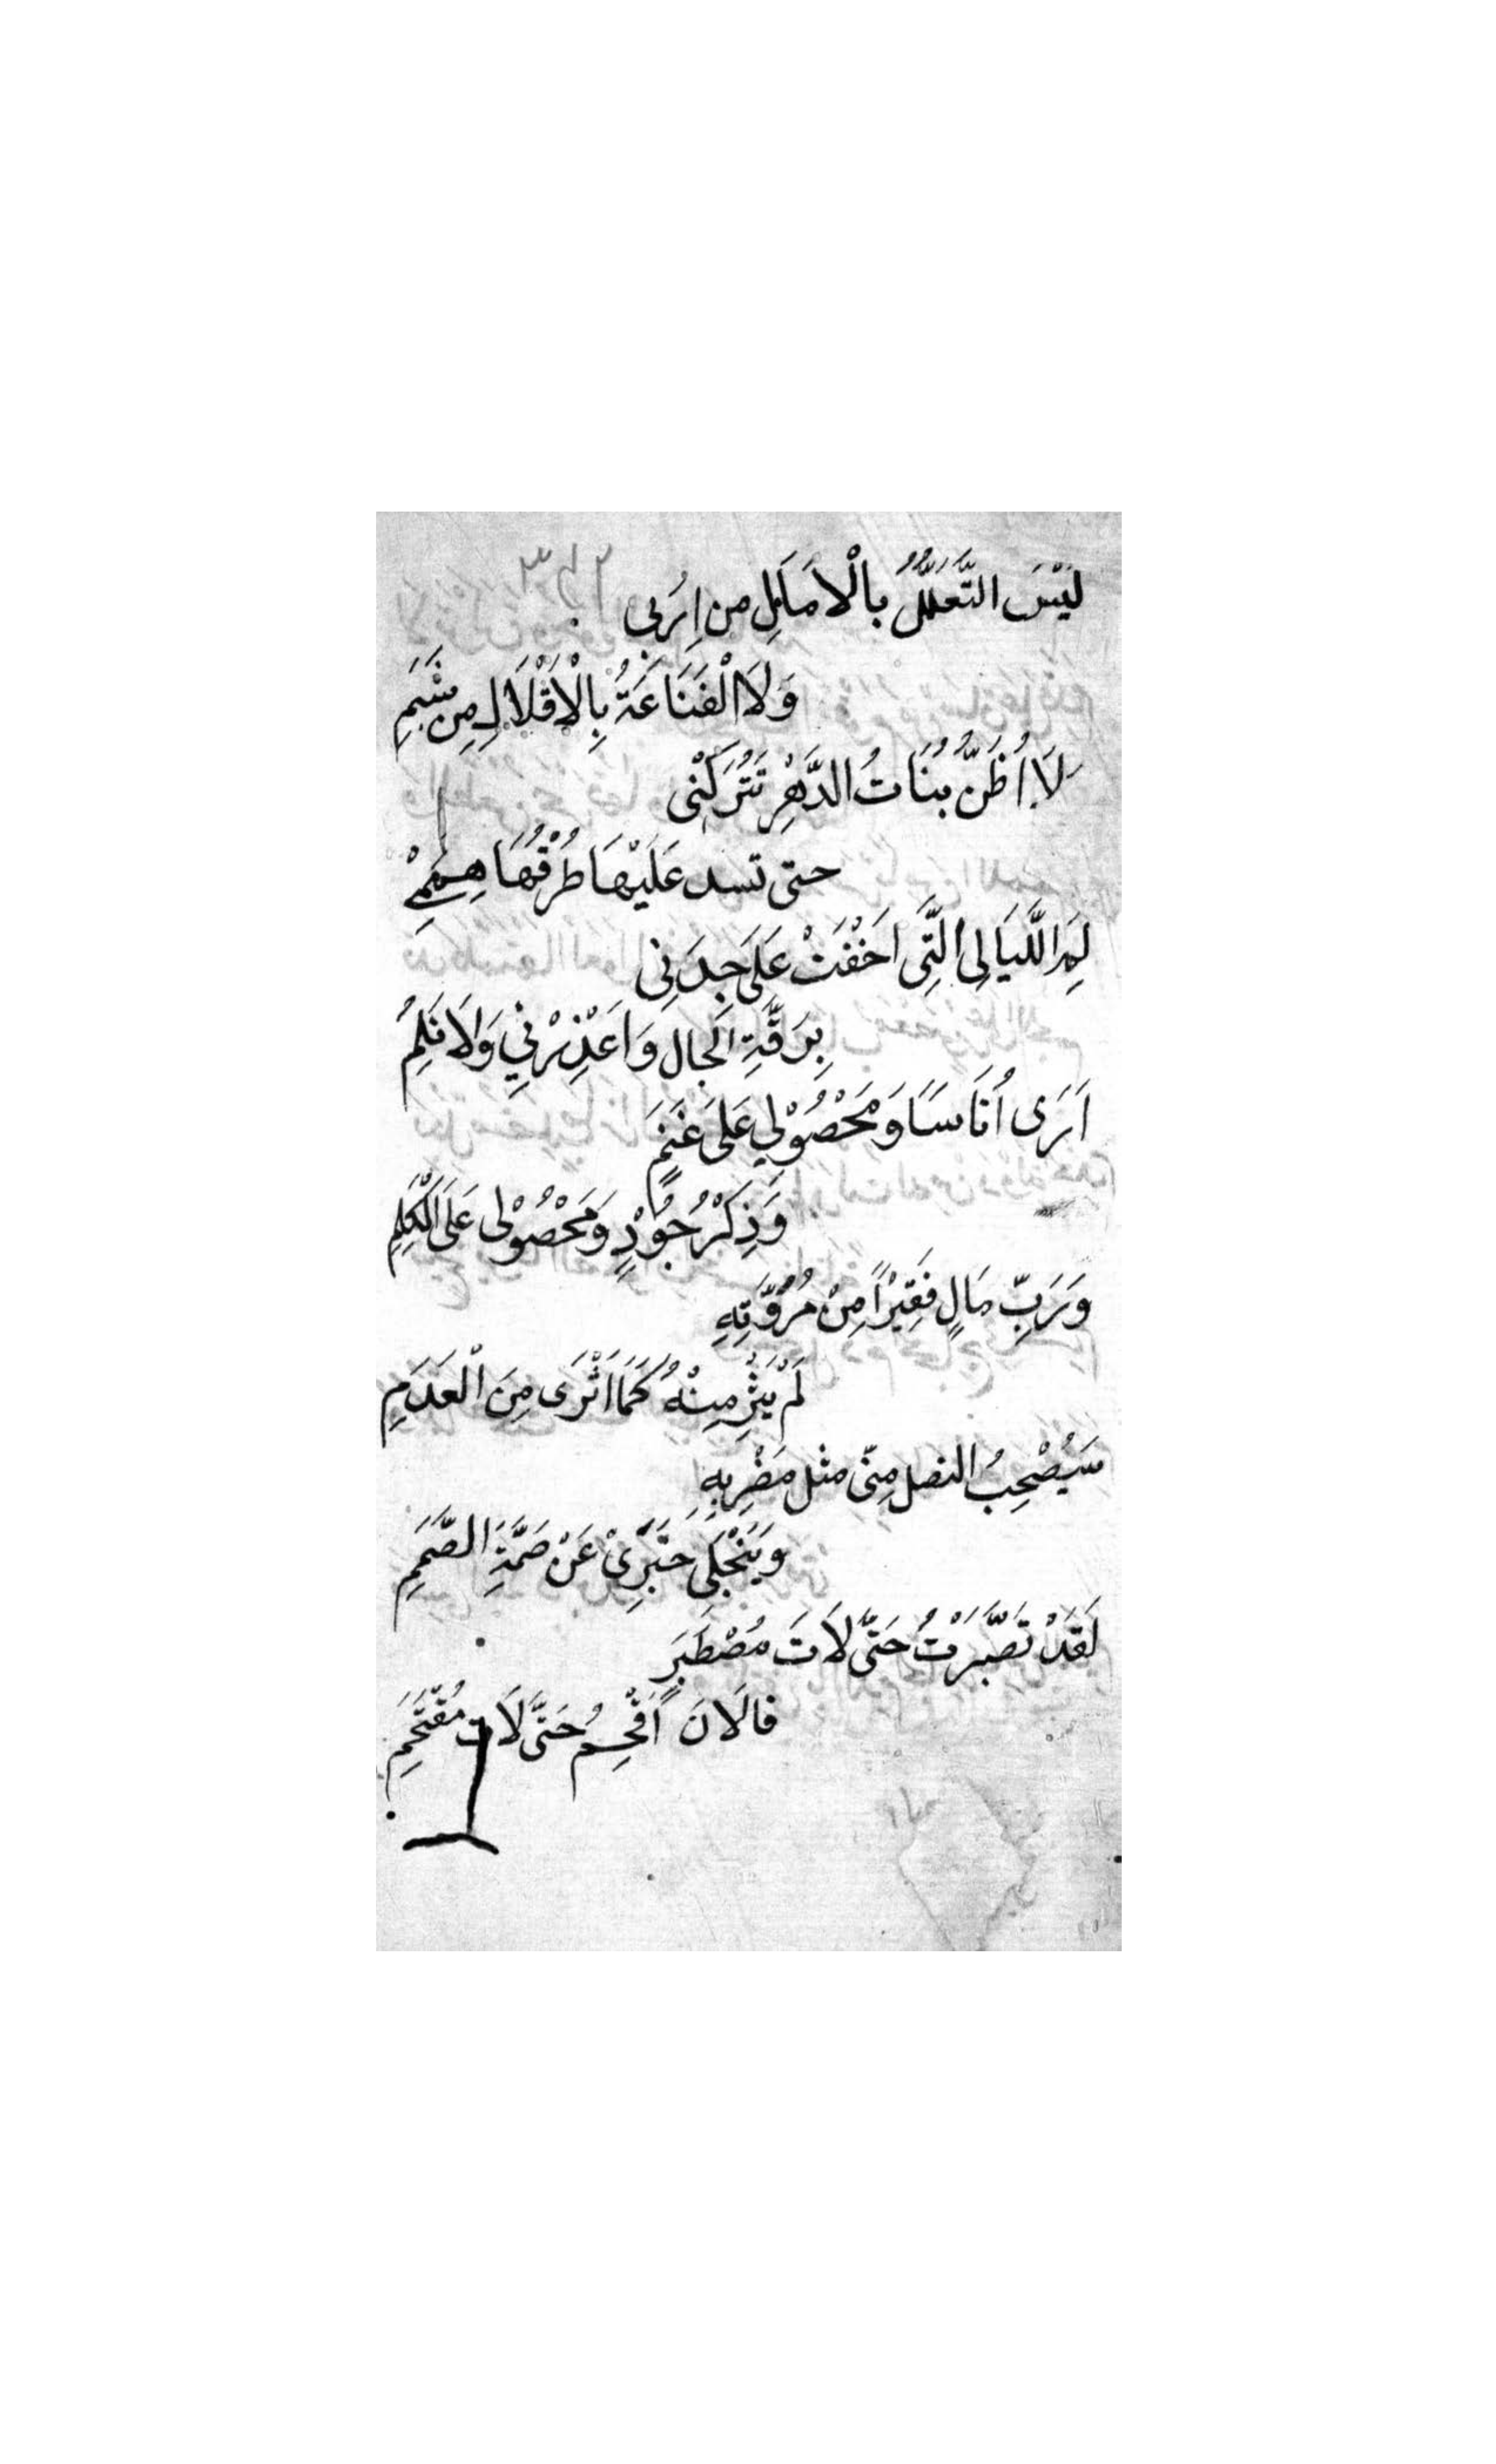 لَيْسَ التَّعَلُّلُ بِالْاَمَالِ مِن اِرَبِي
وَلَا الْقَنَاعَةُ بِالْاِقْلَالِ مِن شِيَمِ
لَا اُظُنُّ بُنَاتُ الدَّهْرِ تَتْرُكُنْى
حتى تسد عَلَيْهَا طُرْقُهَا هِمَمِىْ
لِمِ اللَّيَالِى الَّتِى اَخْفَتْ عَلَى جِدَنِى
بِرِقَّةِ الَحال وَاعْذِرْنِي وَلَا تَلُمِ
اَرَى اُنَاسَاً وَمَحْصُوْلِي عَلَى غَنَمٍ
وَذِكْرُ جُوْدٍ وَمَحْصُوْلِى عَلَى الْكَلِمِ
وَرَبِّ مَالٍ فَقِيْرًا مِنْ مُرُوَّتِهِ
لَمْ يَثْرِ مِنْهُ كَمَا اَثْرَى مِنَ الْعَدَمِ
سَيُصْحِبُ النصل مِنّى مثل مَضْرِبِهِ
وَيَنْجَلِى خَبَرِىْ عَنْ صَمَّةِ الصَّمَمِ
لَقَدْ تَصَبَّرَْتُ حَتَّى لَاتَ مُصْطَبَرٍ
فالَانَ اَقْحِمُ حَتَّى لَات مُقْتَحَمِ